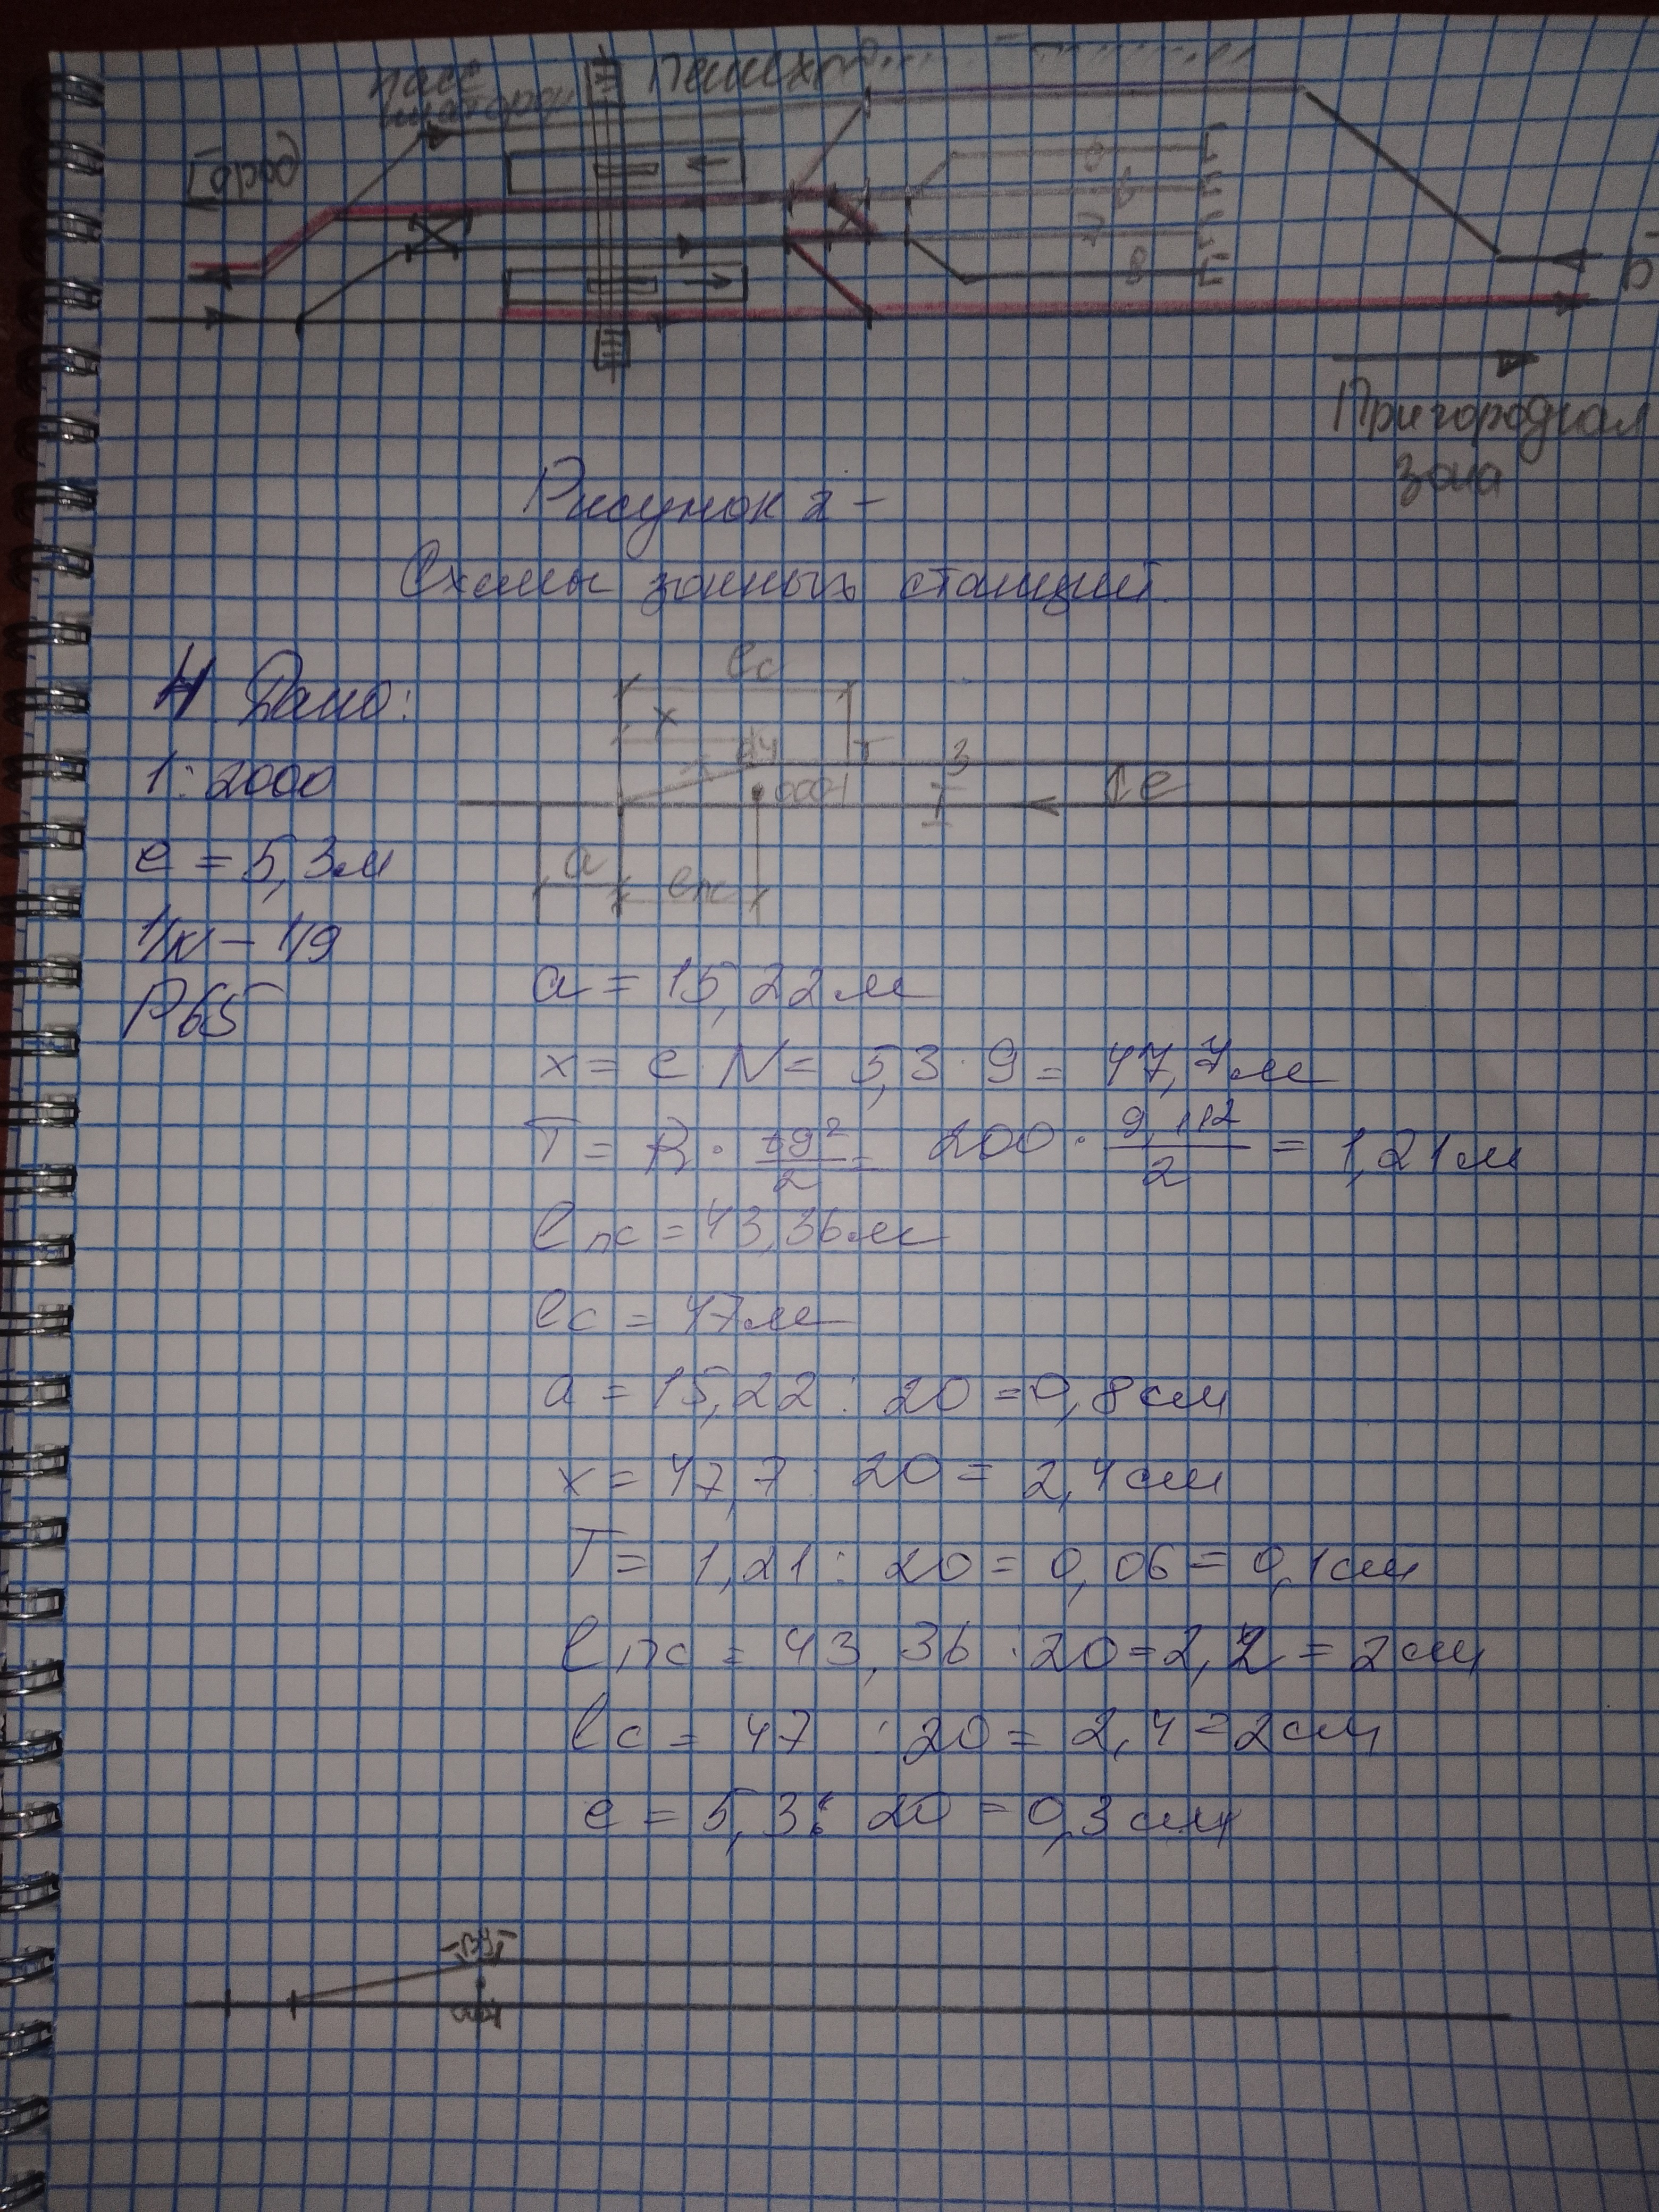 пасс
Пешех
Город
6
7
8
Б
Пригородная
зона
Рисунок 2 -
Схемы зонных станций.
4. Дано:
1:2000
e = 5,3м
1/N - 1/9
P65
lc
x
ВУ
T
3
I
e
a
lпс
a = 15,22м
x = e·N = 5,3·9 = 47,7м
T = R · tg²/2 = 200 · 9,112/2 = 1,21м
lпс = 43,36м
lc = 47м
a = 15,22 : 20 = 0,8см
x = 47,7 : 20 = 2,4см
T = 1,21 : 20 = 0,06 = 0,1см
lпс = 43,36 : 20 = 2,2 = 2см
lc = 47 : 20 = 2,4 = 2см
e = 5,3 : 20 = 0,3см
ВУ